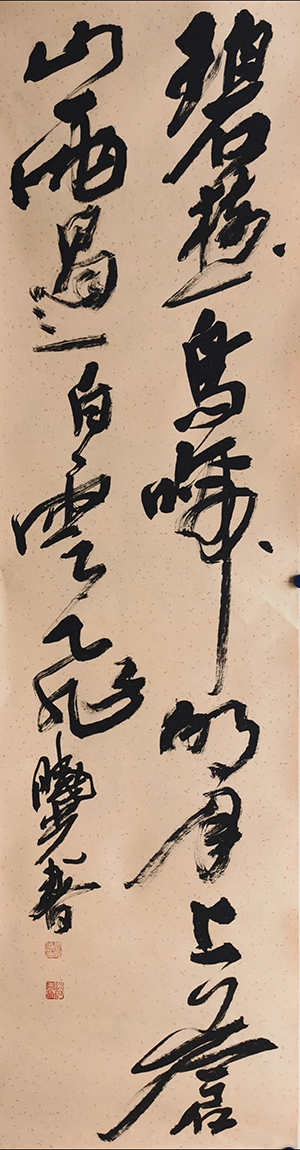 碧樹鳥啼明月上蒼
山雨過白雲飛
曉步書